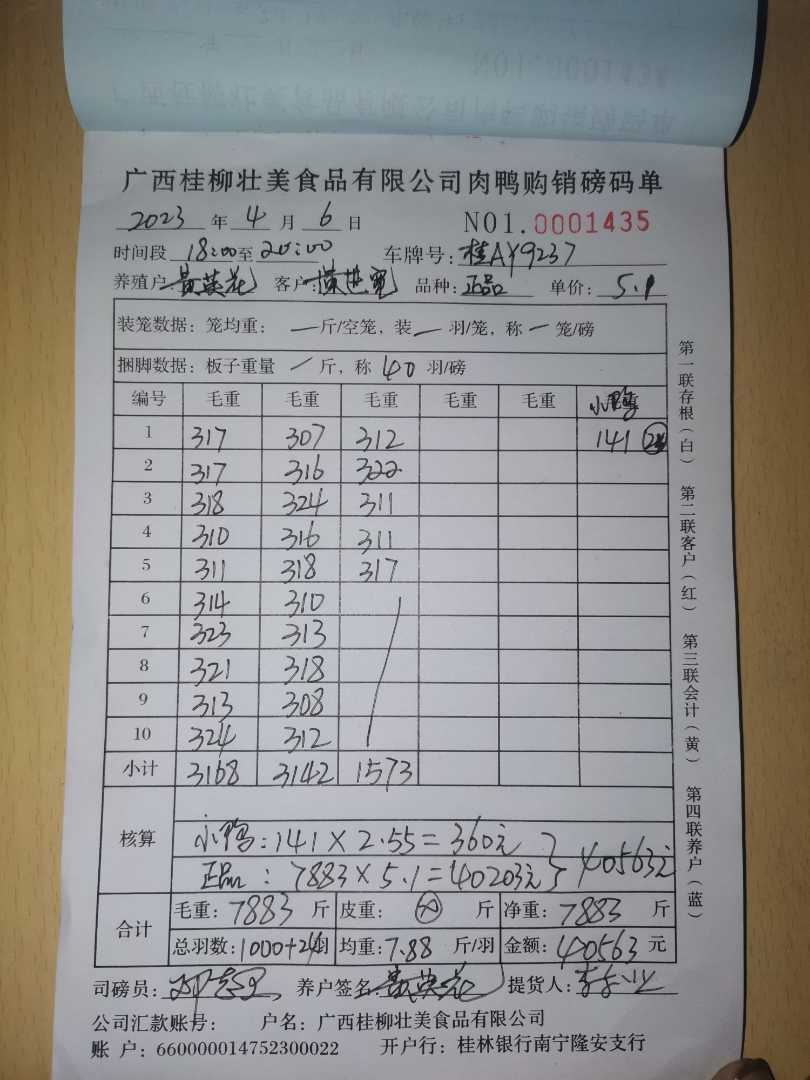 广西桂柳壮美食品有限公司肉鸭购销磅码单
2023 年 4 月 6 日 NO1.0001435
时间段 18:00至 20:00 车牌号: 桂AY9237
养殖户 黄英花 客户: 品种: 正品 单价: 5.1
装笼数据: 笼均重: 一斤/空笼, 装一 羽/笼, 称一 笼/磅
捆脚数据: 板子重量 / 斤, 称 40 羽/磅
编号 毛重 毛重 毛重 毛重 毛重 小鸭
1 317 307 312 141 24
2 317 316 322
3 318 324 311
4 310 316 311
5 311 318 317
6 314 310
7 323 313
8 321 318
9 313 308
10 324 312
小计 3168 3142 1573
核算
小鸭: 141 X 2.55 = 360元
正品: 7883 X 5.1 = 40203元 } 40563元
合计
毛重: 7883 斤 皮重: 斤 净重: 7883 斤
总羽数: 1000+24羽 均重: 7.88 斤/羽 金额: 40563 元
司磅员: 养户签名: 黄英花 提货人:
公司汇款账号: 户名: 广西桂柳壮美食品有限公司
账 户: 660000014752300022 开户行: 桂林银行南宁隆安支行
第一联存根(白) 第二联客户(红) 第三联会计(黄) 第四联养户(蓝)